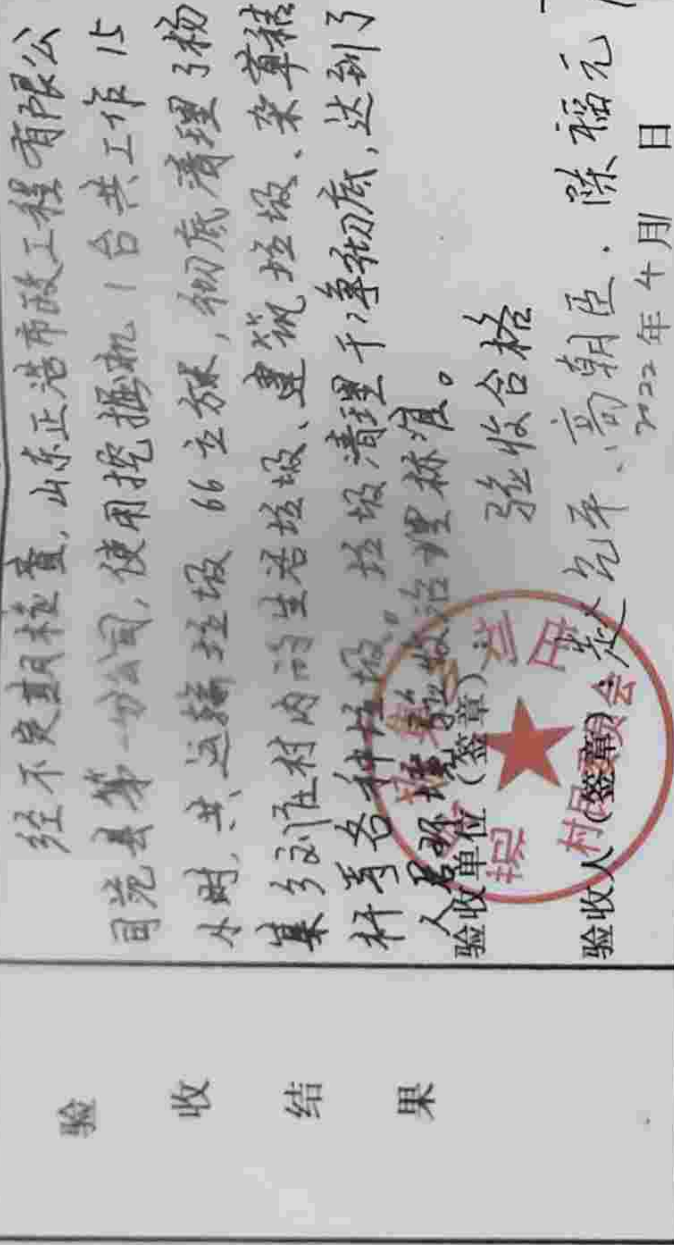 验收结果
经不定期检查,山东正浩市政工程有限公
司莞县第一分公司,使用挖掘机1台共工作15
小时,共运输垃圾66立方米,彻底清理了杨
集乡刘庄村内的生活垃圾、建筑垃圾、杂草秸
秆等各种垃圾。垃圾清理干净彻底,达到了
人居环境整治治理标准。
验收合格
验收单位(签章):
验收人(签章): 高朝臣、陈福元
2022年4月 日
村民委员会